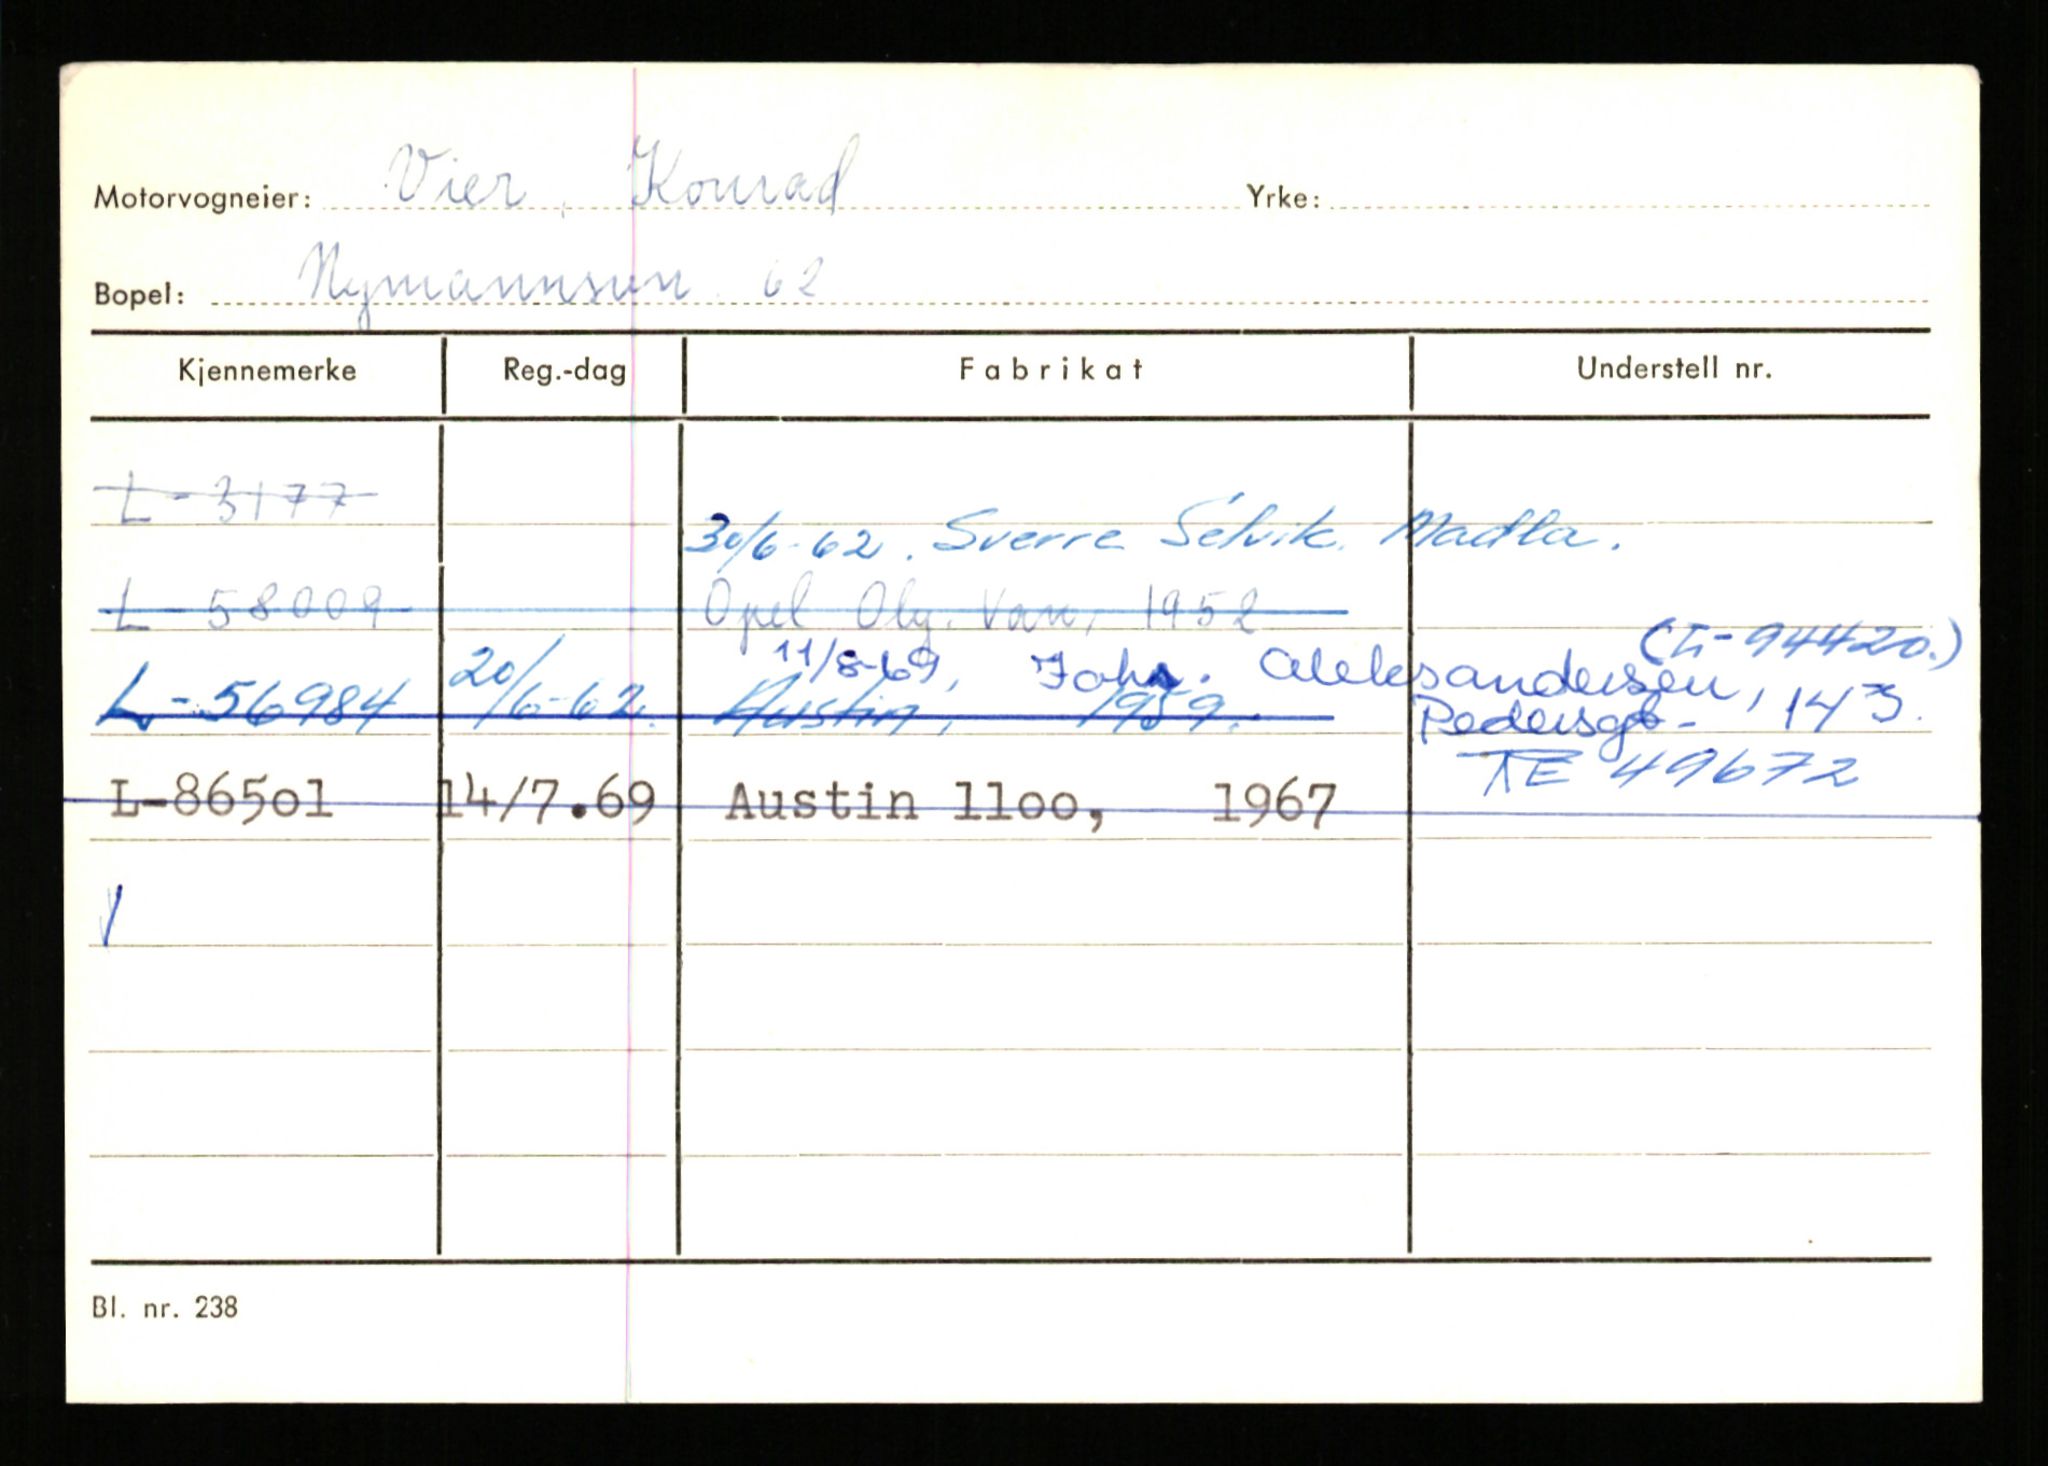 Motorvogneier: Vier, Konrad Yrke:
Bopel: Nymannsvn 62
Kjennemerke Reg.-dag Fabrikat Understell nr.
L-3177
30/6-62. Sverre Selvik. Madla.
L-58009 Opel Oly. Van, 1952
(L-94420.)
11/8-69, Johs. Aleksandersen,
L-56984 20/6-62. Austin, 1959. Pedersgt- 143.
TE 49672
L-865ol 14/7.69 Austin lloo, 1967
Bl. nr. 238